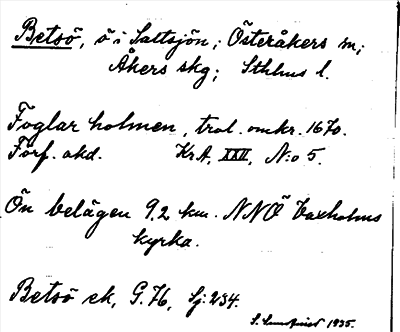 Betsö, ö i Saltsjön; Österåkers sn;
Åkers skg; Sthlms l.
Foglar holmen, trol. omkr. 1670.
Förf. okd. KrA, XXII, N:o 5.
Ön belägen 9.2 km. NNÖ Vaxholms
kyrka.
Betsö ek, G. 76, Sj: 234.
S. Lundquist 1935.